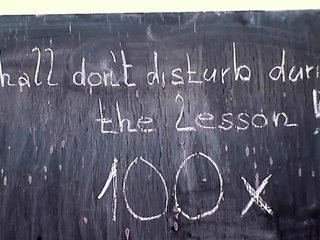 hall don't disturb dur
the Lesson !
100 x